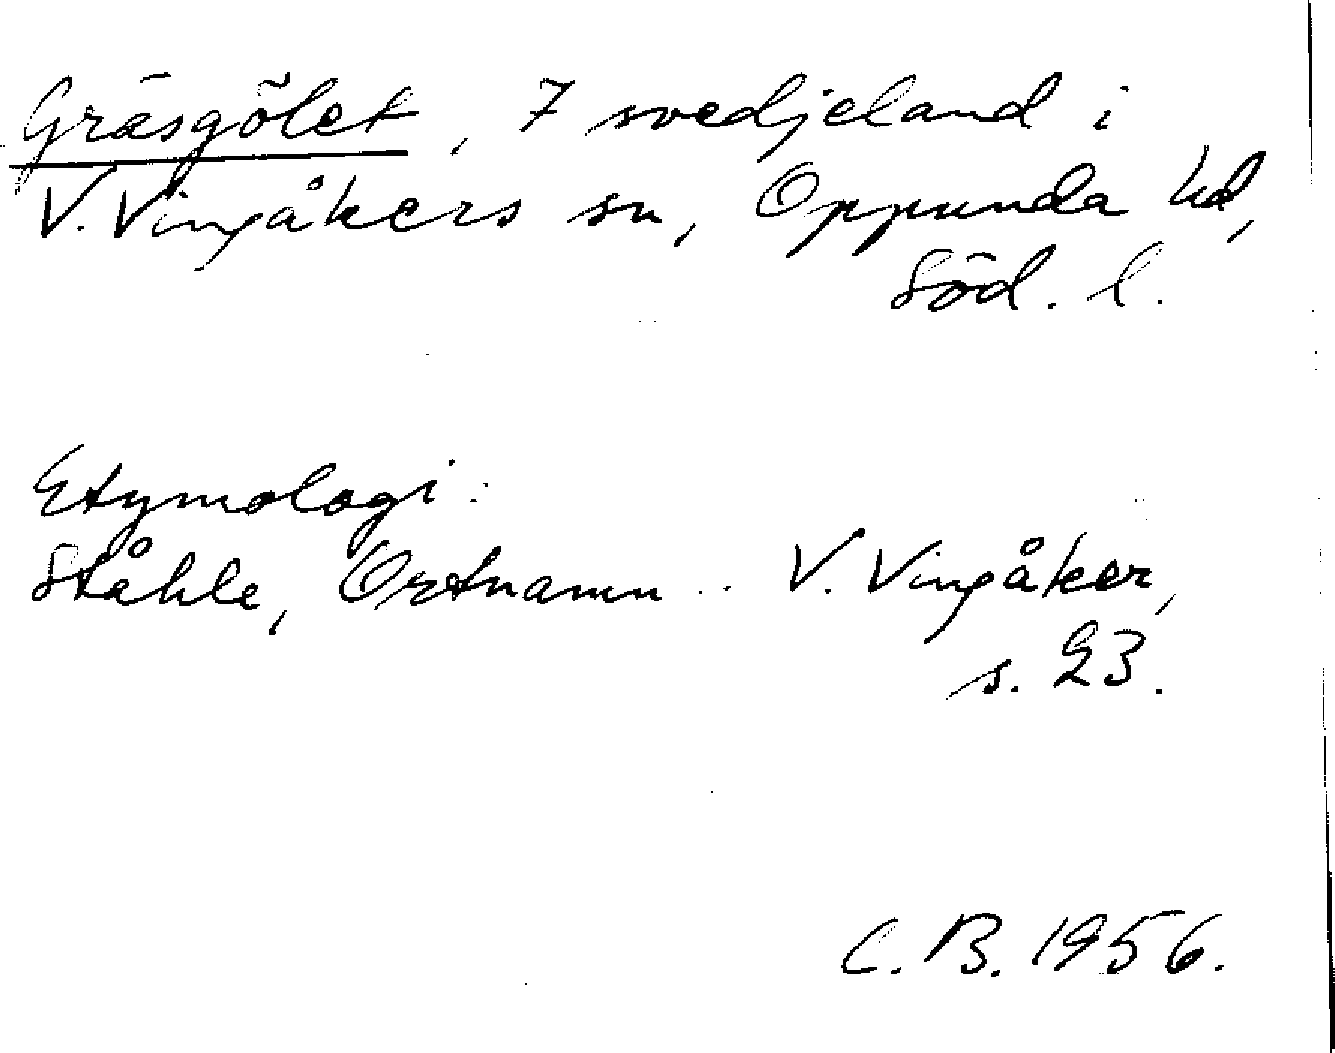 Gräsgölet, 7 svedjeland i
V. Vingåkers sn, Oppunda hd,
Söd. l.
Etymologi:
Ståhle, Ortnamn .. V. Vingåker,
s. 23.
C. B. 1956.